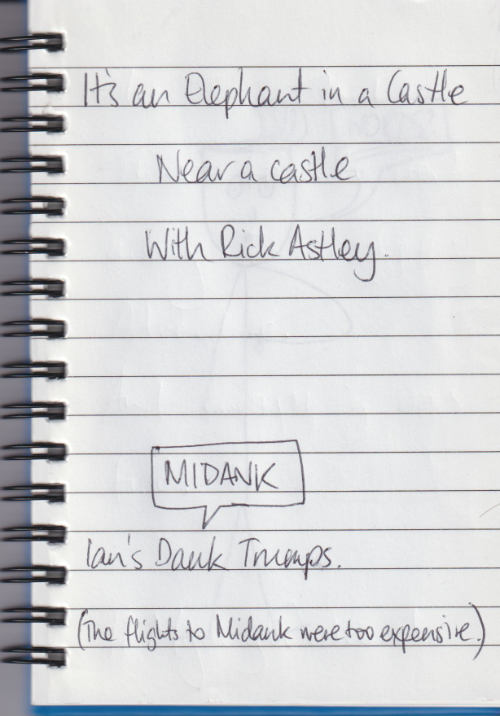 It's an Elephant in a Castle
Near a castle
With Rick Astley.
MIDANK
Ian's Dank Trumps.
(The flights to Midank were too expensive.)